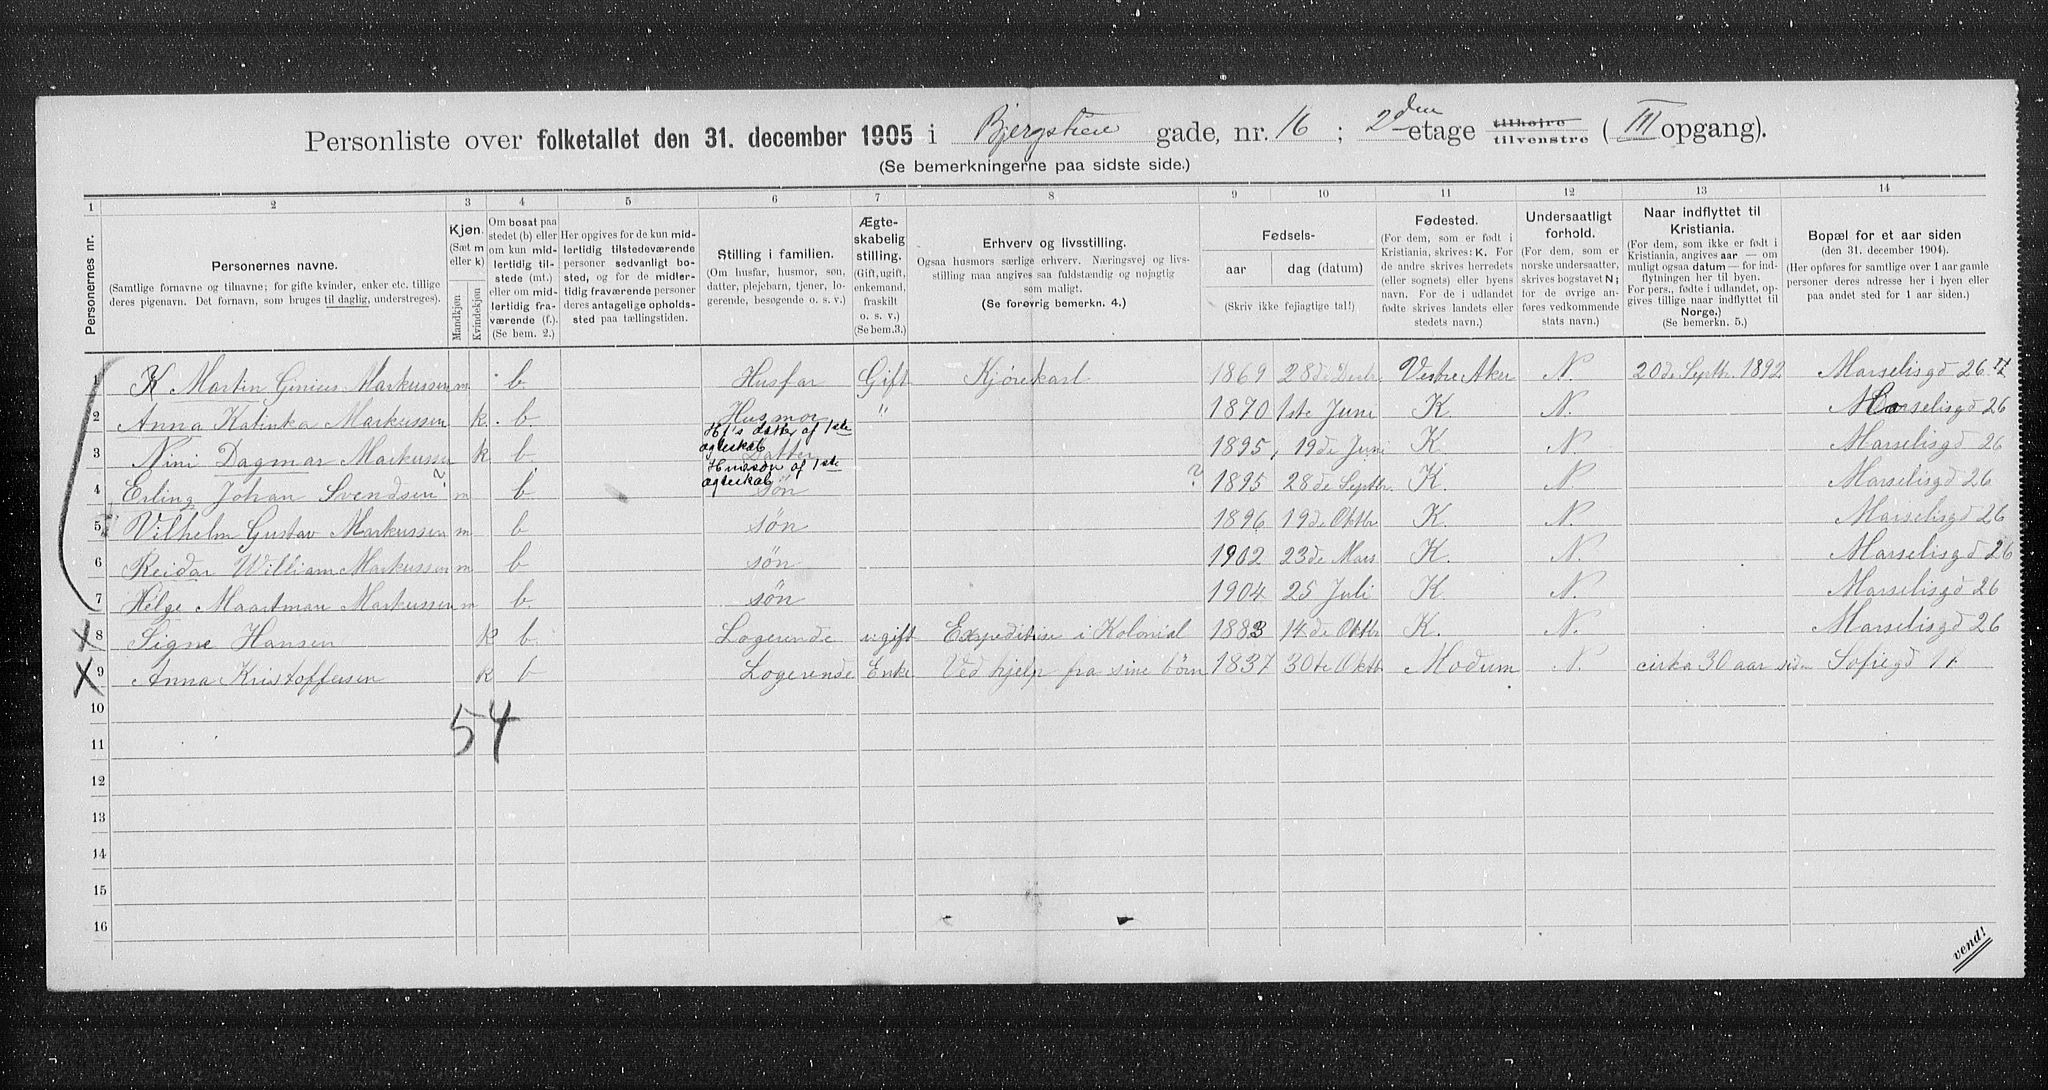 Personliste over folketallet den 31. december 1905 i Bjergstien gade, nr. 16 ; 2den etage tilhøjre tilvenstre ( III opgang).
(Se bemerkningerne paa sidste side.)
1 2 3 4 5 6 7 8 9 10 11 12 13 14
Personernes nr.
Personernes navne.
(Samtlige fornavne og tilnavne; for gifte kvinder, enker etc. tillige deres pigenavn. Det fornavn, som bruges til daglig, understreges).
Kjøn.
(Sæt m eller k)
Mandkjøn
Kvindekjøn
Om bosat paa stedet (b) eller om kun midlertidig tilstede (mt.) eller om midlertidig fraværende (f.). (Se bem. 2.)
Her opgives for de kun midlertidig tilstedeværende personer sedvanligt bosted, og for de midlertidig fraværende personer deres antagelige opholdssted paa tællingstiden.
Stilling i familien.
(Om husfar, husmor, søn, datter, plejebarn, tjener, logerende, besøgende o. s. v.)
Ægteskabelig stilling.
(Gift, ugift, enkemand, fraskilt o. s. v.)
(Se bem.3.)
Erhverv og livsstilling.
Ogsaa husmors særlige erhverv. Næringsvej og livsstilling maa angives saa fuldstændig og nøjagtig som muligt.
(Se forøvrig bemerkn. 4.)
Fødsels-
aar dag (datum)
(Skriv ikke fejlagtige tal!)
Fødested.
(For dem, som er født i Kristiania, skrives: K. For de andre skrives herredets (eller sognets) eller byens navn. For de i udlandet fødte skrives landets eller stedets navn.)
Undersaatligt forhold.
(For dem, som er norske undersaatter, skrives bogstavet N; for de øvrige anføres vedkommende stats navn.)
Naar indflyttet til Kristiania.
(For dem, som ikke er født i Kristiania, angives aar — om muligt ogsaa datum — for indflytningen her til byen. For pers., fødte i udlandet, opgives tillige naar indflyttet til Norge.)
(Se bemerkn. 5.)
Bopæl for et aar siden
(den 31. december 1904).
(Her opføres for samtlige over 1 aar gamle personer deres adresse her i byen eller paa andet sted for 1 aar siden.)
1 K Martin Ginius Markussen m b. Husfar Gift Kjørekarl 1869 28de Decbr. Vestre Aker N. 20de Septbr 1892 Marselisgd 26
2 Anna Katinka Markussen k b. Husmor " 1870 1ste Juni K N. Marselisgd 26
Hf's datter af 1ste
agteskab
3 Nini Dagmar Markussen k b Datter 1895 19de Juni K N Marselisgd 26
Hmsøn af 1ste
agteskab
4 Erling Johan Svendsen ? m b. søn ? 1895 28de Septbr. K. N Marselisgd 26
5 Vilhelm Gustav Markussen m b søn 1896 19de Oktbr K. N. Marselisgd 26
6 Reidar William Markussen m b søn 1902 23de Mars K. N. Marselisgd 26
7 Helge Maartman Markussen m b. søn 1904 25 Juli K. N. Marselisgd 26
X 8 Signe Hansen k b. Logerende ugift Expeditrise i Kolonial 1883 14de Oktbr K. N. Marselisgd 26
X 9 Anna Kristoffersen k b Logerende Enke Ved hjelp fra sine børn 1837 30te Oktb Modum N. cirka 30 aar siden Sofiegd
10
54
11
12
13
14
15
16
vend!